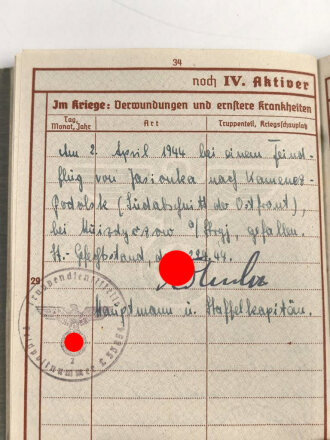 34
noch IV. Aktiver
Im Kriege: Verwundungen und ernstere Krankheiten
Tag, Monat, Jahr
Art
Truppenteil, Kriegsschauplatz
Am 2. April 1944 bei einem Feind-
flug von Jasionka nach Kamenez-
Podolsk (Südabschnitt der Ostfront),
bei gefallen.
St.-Gefechtsstand, den
29
Hauptmann u. Staffelkapitän.
2